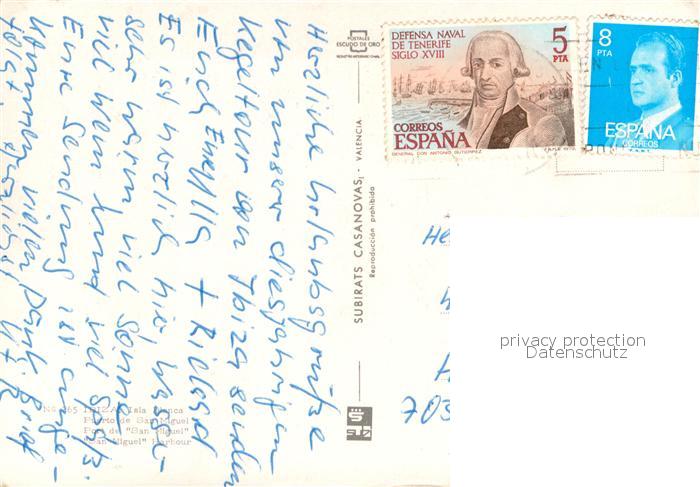 Herzliche Urlaubsgrüße
von unserer diesjährigen
Kegeltour von Ibiza senden
Euch Emylia + Richard
Es ist herrlich hier, Wasser
sehr warm viel Sonne
viel Wein und viel Spaß.
Eure Sendung ist ange-
kommen, vielen Dank. Brief
folgt.
Nº 365 IBIZA. Isla Blanca
Puerto de San Miguel
Port de "San Miguel"
"San Miguel" Harbour
POSTALES
ESCUDO DE ORO
SUBIRATS CASANOVAS, - VALENCIA
Reproducción prohibida
DEFENSA NAVAL
DE TENERIFE
SIGLO XVIII
5
PTA
CORREOS
ESPAÑA
GENERAL DON ANTONIO GUTIERREZ
8
PTA
ESPAÑA
CORREOS
He
703
privacy protection
Datenschutz